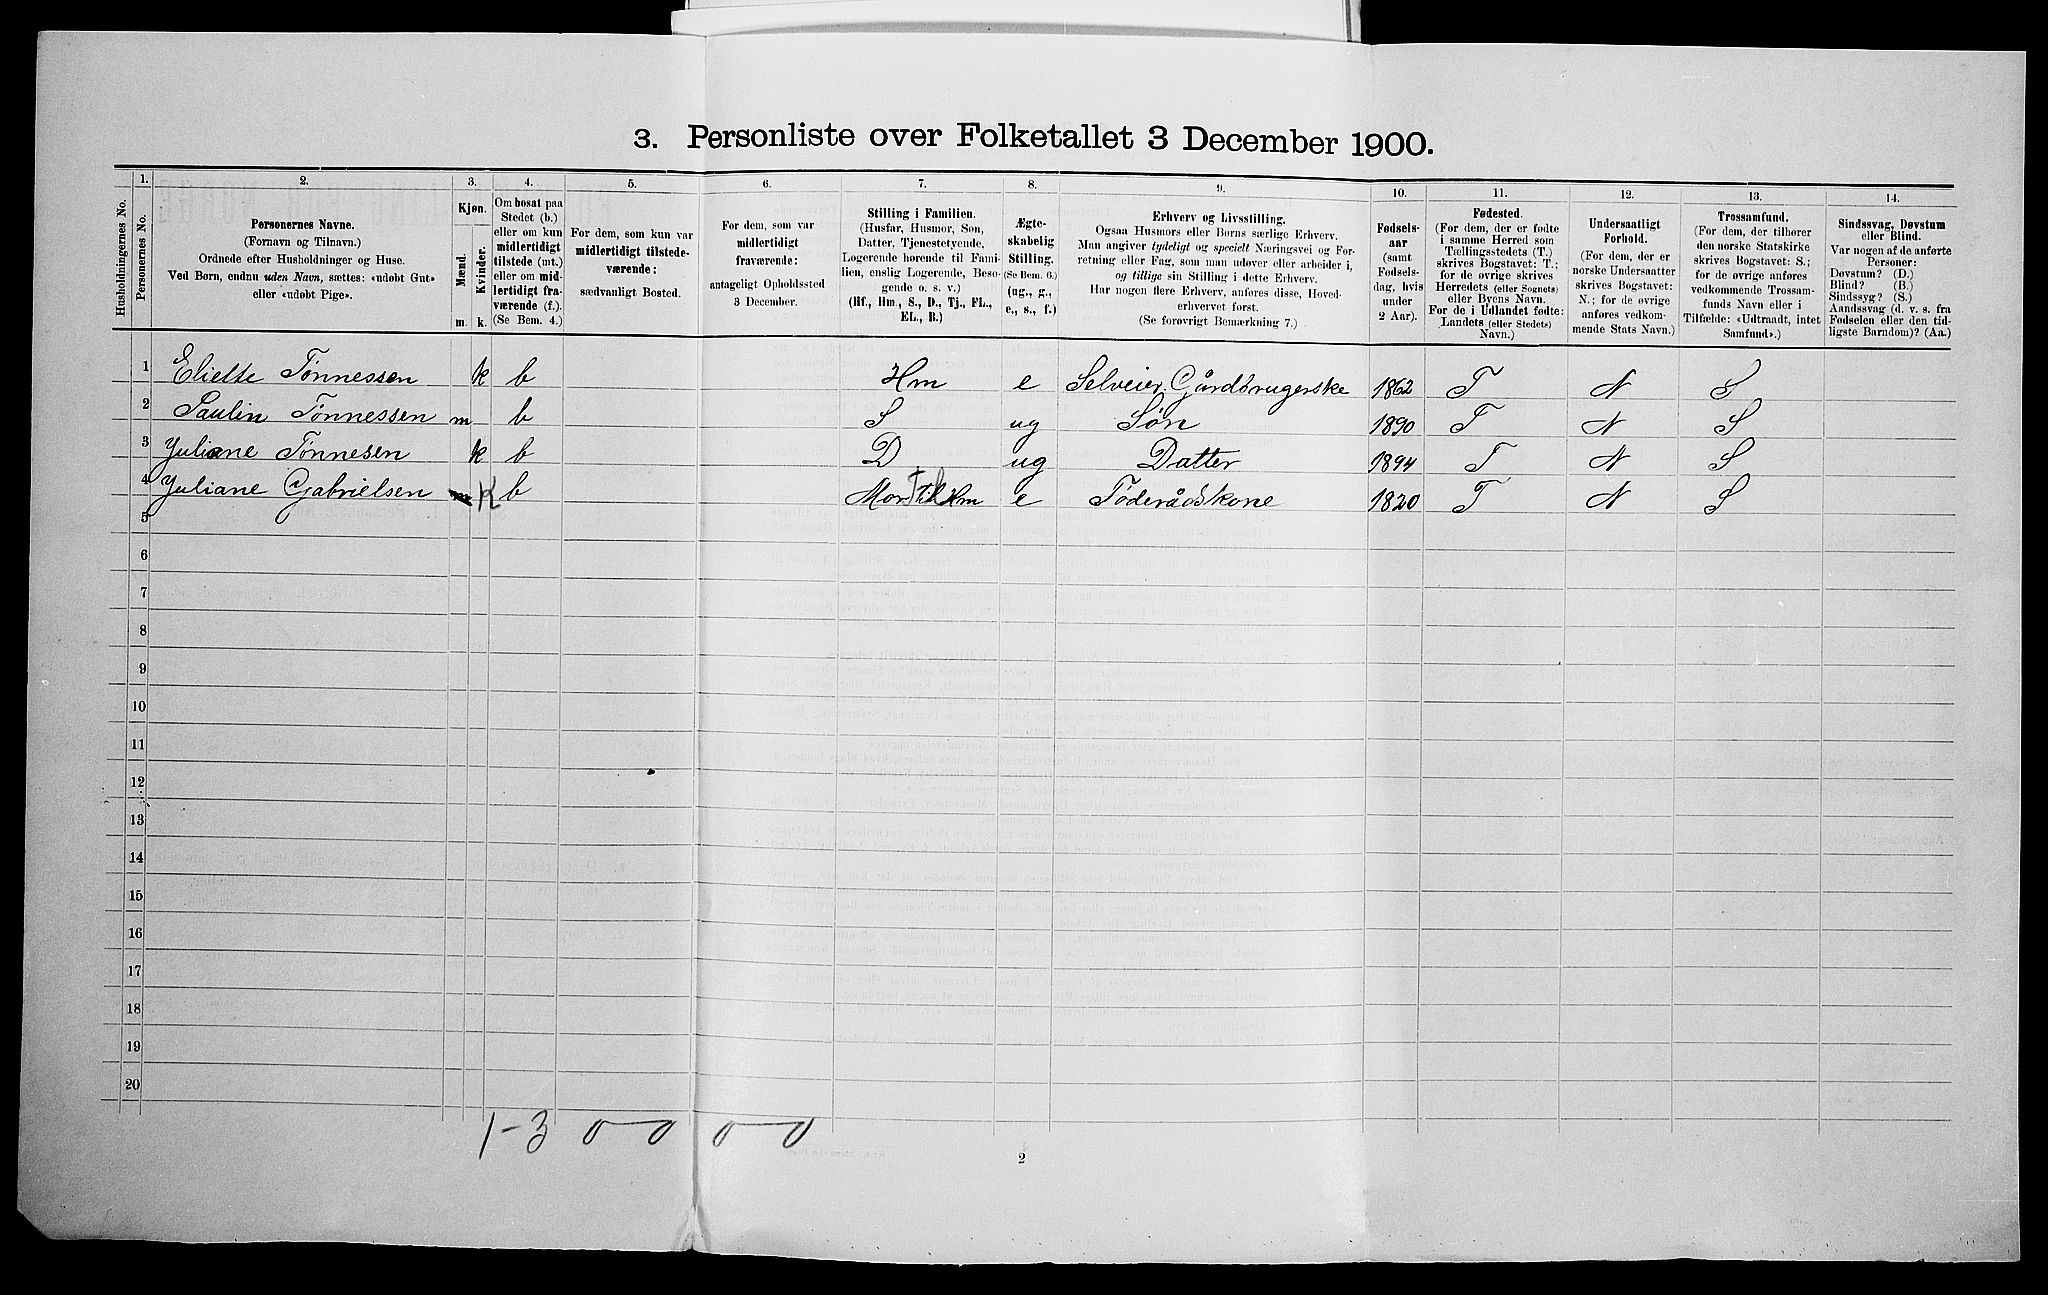 3. Personliste over Folketallet 3 December 1900.
1. 2. 3. 4. 5. 6. 7. 8. 9. 10. 11. 12. 13. 14.
Husholdningernes No.
Personernes No.
Personernes Navne.
(Fornavn og Tilnavn.)
Ordnede efter Husholdninger og Huse.
Ved Børn, endnu uden Navn, sættes: «udøbt Gut»
eller «udøbt Pige».
Kjøn.
Mænd.
Kvinder.
m. k.
Om bosat paa
Stedet (b.)
eller om kun
midlertidigt
tilstede (mt.)
eller om mid-
lertidigt fra-
værende (f.).
(Se Bem. 4.)
For dem, som kun var
midlertidigt tilstede-
værende:
sædvanligt Bosted.
For dem, som var
midlertidigt
fraværende:
antageligt Opholdssted
3 December.
Stilling i Familien.
(Husfar, Husmor, Søn,
Datter, Tjenestetyende,
Logerende hørende til Fami-
lien, enslig Logerende, Beso-
gende o. s. v.)
(Hf., Hm., S., D., Tj., FL.,
EL., B.)
Ægte-
skabelig
Stilling.
(Se Bem. 6.)
(ug., g.,
e., s., f.)
Erhverv og Livsstilling.
Ogsaa Husmors eller Børns særlige Erhverv.
Man angiver tydeligt og specielt Næringsvei og For-
retning eller Fag, som man udøver eller arbeider i,
og tillige sin Stilling i dette Erhverv.
Har nogen flere Erhverv, anføres disse, Hoved-
erhvervet først.
(Se forøvrigt Bemærkning 7.)
Fødsels-
aar
(samt
Fødsels-
dag, hvis
under
2 Aar).
Fødested.
(For dem, der er fødte
i samme Herred som
Tællingsstedets (T.)
skrives Bogstavet: T.;
for de øvrige skrives
Herredets (eller Sognets)
eller Byens Navn.
For de i Udlandet fødte:
Landets (eller Stedets)
Navn.)
Undersaatligt
Forhold.
(For dem, der er
norske Undersaatter
skrives Bogstavet:
N.; for de øvrige
anføres vedkom-
mende Stats Navn.)
Trossamfund.
(For dem, der tilhører
den norske Statskirke
skrives Bogstavet: S.;
for de øvrige anføres
vedkommende Trossam-
funds Navn eller i
Tilfælde: «Udtraadt, intet
Samfund».)
Sindssvag, Døvstum
eller Blind.
Var nogen af de anførte
Personer:
Døvstum? (D.)
Blind? (B.)
Sindssyg? (S.)
Aandssvag (d. v. s. fra
Fødselen eller den tid-
ligste Barndom)? (Aa.)
1 Eliette Tønnessen k b Hm e Selveier, Gårdbrugerske 1862 T N S
2 Paulin Tønnessen m b S ug Søn 1890 T N S
3 Juliane Tønnesen k b D ug Datter 1894 T N S
4 Juliane Gabrielsen m K b Mor til Hm e Föderådskone 1820 T N S
5
6
7
8
9
10
11
12
13
14
15
16
17
18
19
20
1-3 0 0 0 0
2